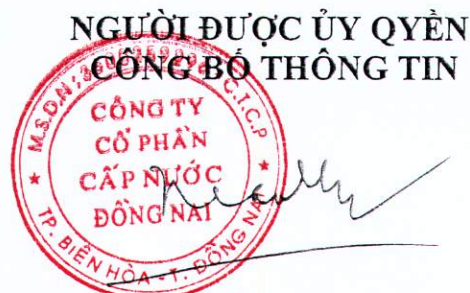 NGƯỜI ĐƯỢC ỦY QYỀN
CÔNG BỐ THÔNG TIN
CÔNG TY
CỔ PHẦN
CẤP NƯỚC
ĐỒNG NAI
TP. BIÊN HÒA - T. ĐỒNG NAI